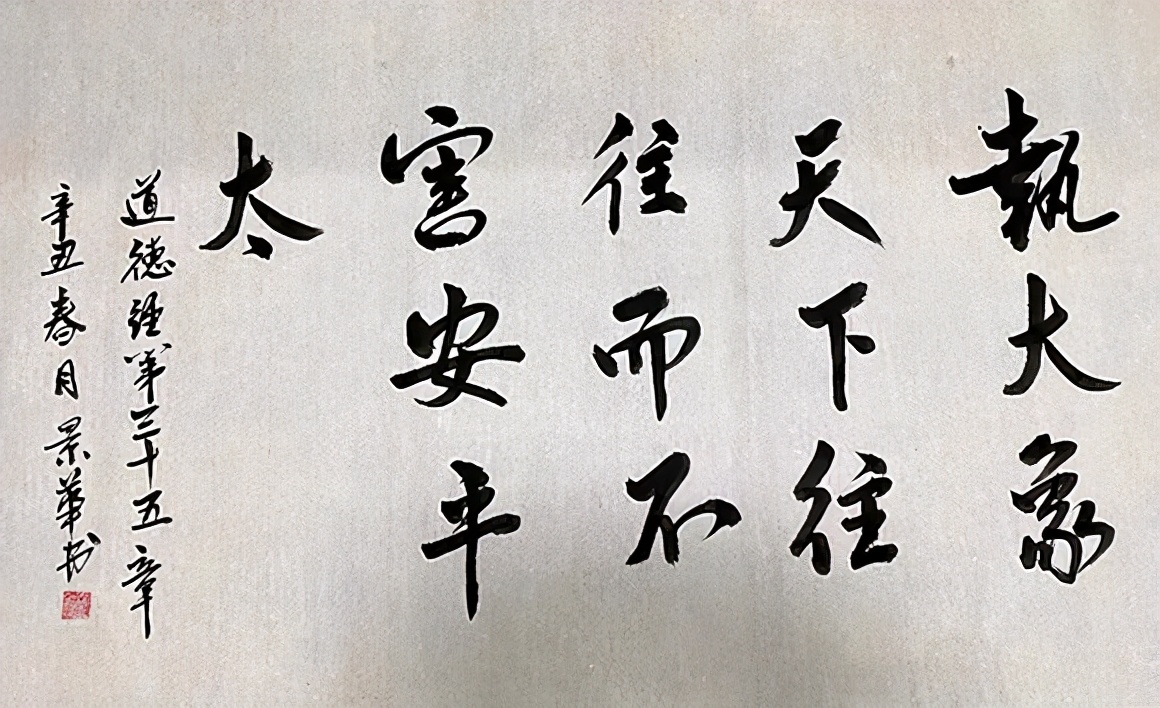 執大象
天下往
往而不
害安平
太
道德经第三十五章
辛丑春月景华书